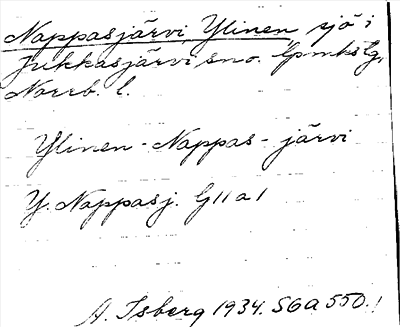 Nappasjärvi, Ylinen sjö i
Jukkasjärvi sn o. lpmkslg,
Norrb. l.
Ylinen-Nappas-järvi
Y. Nappasj. G11a1
A. Isberg 1934. S6a550.